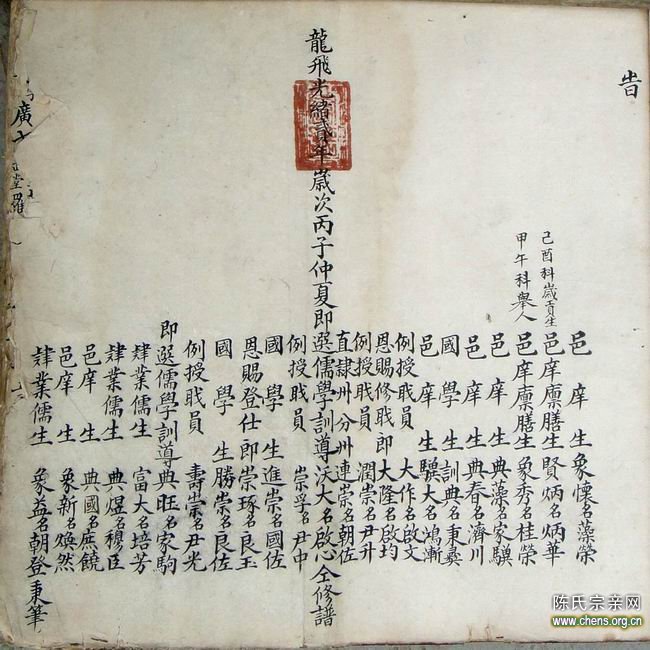 旹
邑庠生象懷名藻榮
己酉科歲貢生
邑庠廩膳生賢炳名炳華
甲午科舉人
邑庠廩膳生象秀名桂榮
邑庠生典藻名家驥
邑庠生典春名濟川
國學生訓典名秉彝
邑庠生驥大名鴻漸
例授職員大作名啟文
恩賜修職郎大隆名啟均
例授職員潤崇名尹升
直隸州分州連崇名朝佐
龍飛光緒貳年歲次丙子仲夏即選儒學訓導沃大名啟心仝修譜
例授職員崇孚名尹中
國學生進崇名國佐
恩賜登仕郎崇琢名良玉
國學生勝崇名良佐
例授職員壽崇名尹光
即選儒學訓導典旺名家駒
肄業儒生富大名培芳
肄業儒生典煜名穆臣
邑庠生典國名庶饒
邑庠生象新名煥然
肄業儒生象益名朝登秉筆
廣
堂羅
陈氏宗亲网
www.chens.org.cn